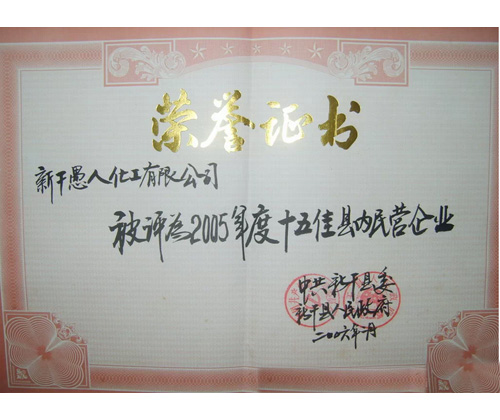 荣誉证书
新干愚人化工有限公司
被评为2005年度十五佳县内民营企业
中共新干县委
新干县人民政府
二00六年一月